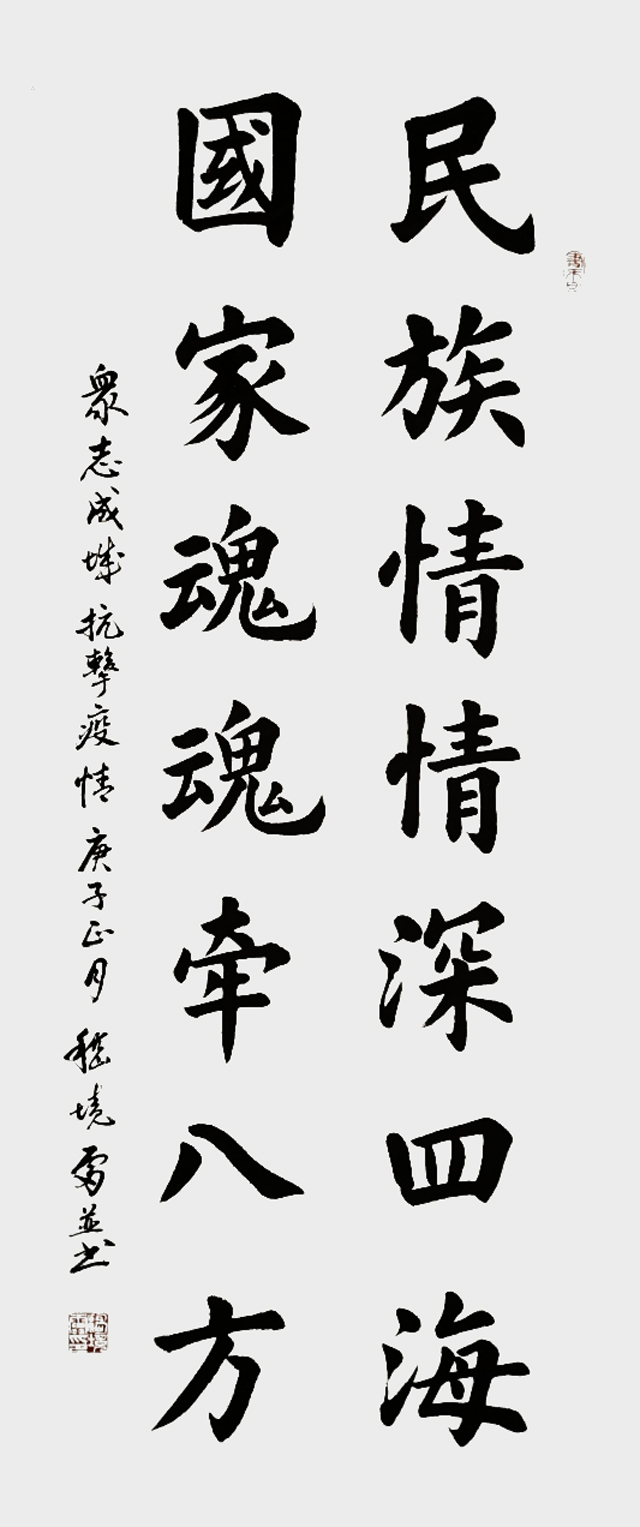 民族情情深四海
國家魂魂牵八方
衆志成城抗擊疫情庚子正月 境雷並书